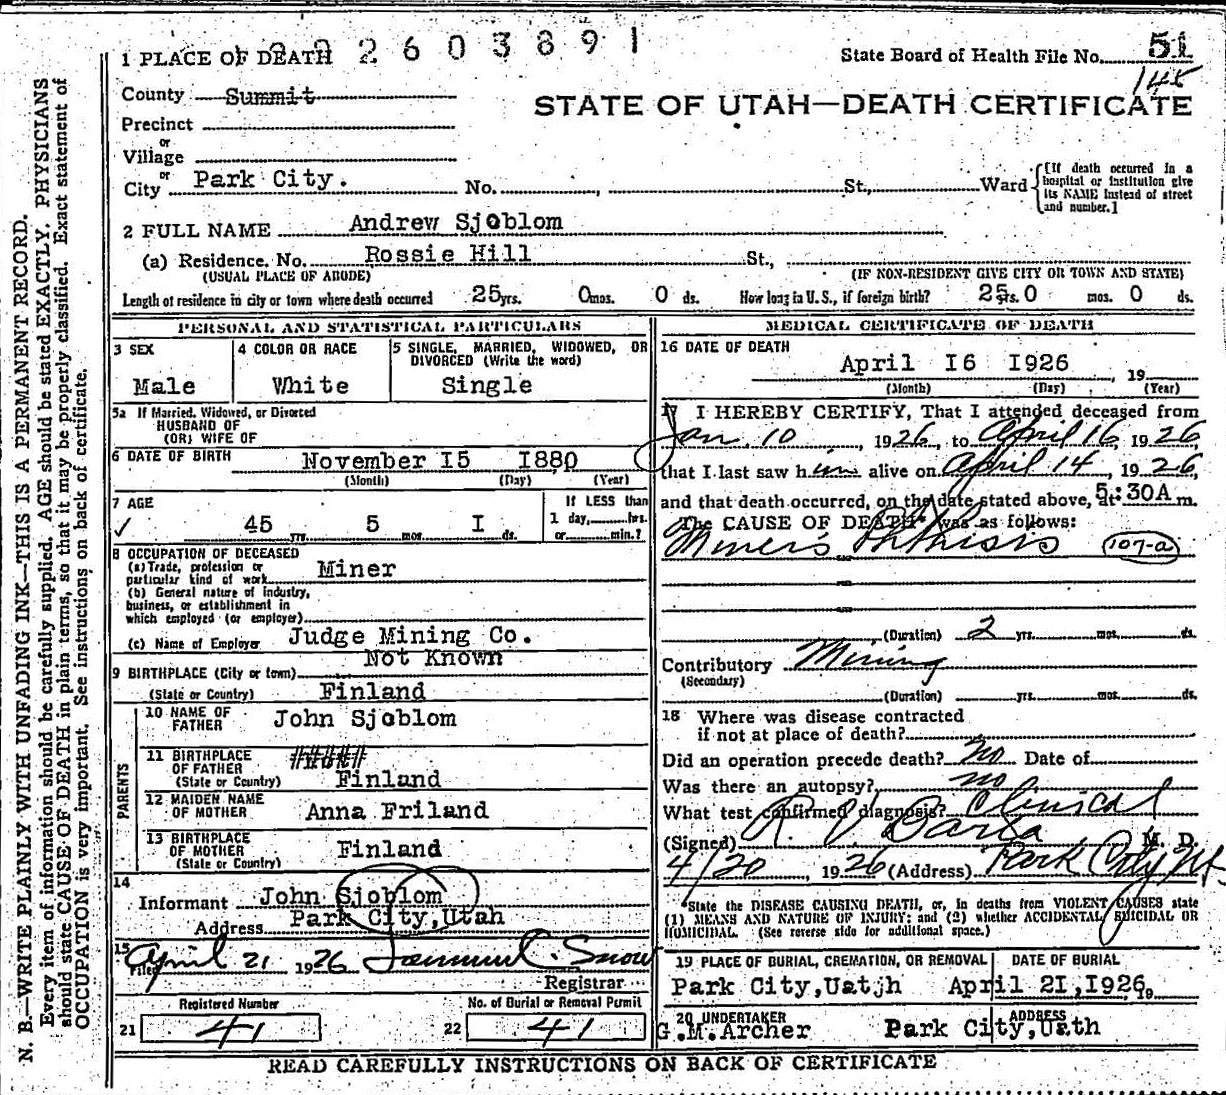 2603891
1 PLACE OF DEATH
State Board of Health File No. 51
145
County Summit
STATE OF UTAH—DEATH CERTIFICATE
Precinct
or
Village
or
City Park City. No. St., Ward
[If death occurred in a hospital or institution give its NAME instead of street and number.]
2 FULL NAME Andrew Sjoblom
(a) Residence. No. Rossie Hill St.,
(USUAL PLACE OF ABODE) (IF NON-RESIDENT GIVE CITY OR TOWN AND STATE)
Length of residence in city or town where death occurred 25 yrs. 0 mos. 0 ds. How long in U.S., if foreign birth? 25 yrs. 0 mos. 0 ds.
PERSONAL AND STATISTICAL PARTICULARS
3 SEX
Male
4 COLOR OR RACE
White
5 SINGLE, MARRIED, WIDOWED, OR DIVORCED (Write the word)
Single
5a If Married, Widowed, or Divorced
HUSBAND OF
(OR) WIFE OF
6 DATE OF BIRTH November I5 I880
(Month) (Day) (Year)
7 AGE
✓ 45 yrs. 5 mos. I ds.
If LESS than
1 day, hrs.
or min.?
8 OCCUPATION OF DECEASED
(a) Trade, profession or
particular kind of work Miner
(b) General nature of industry,
business, or establishment in
which employed (or employer)
(c) Name of Employer Judge Mining Co.
Not Known
9 BIRTHPLACE (City or town)
(State or Country) Finland
PARENTS
10 NAME OF FATHER John Sjoblom
11 BIRTHPLACE OF FATHER
(State or Country) Finland
12 MAIDEN NAME OF MOTHER Anna Friland
13 BIRTHPLACE OF MOTHER
(State or Country) Finland
14
Informant John Sjoblom
Address Park City,Utah
15
Filed April 21 1926 Samuel C. Snow
Registrar
Registered Number
21 41
No. of Burial or Removal Permit
22 41
MEDICAL CERTIFICATE OF DEATH
16 DATE OF DEATH
April I6 I926, 19
(Month) (Day) (Year)
17 I HEREBY CERTIFY, That I attended deceased from
Jan. 10, 1926, to April 16, 1926,
that I last saw him alive on April 14, 1926,
and that death occurred, on the date stated above, at 5:30A m.
The CAUSE OF DEATH* was as follows:
Miner's Phthisis 107-a
(Duration) 2 yrs. mos. ds.
Contributory Mining
(Secondary)
(Duration) yrs. mos. ds.
18 Where was disease contracted
if not at place of death?
Did an operation precede death? no Date of
Was there an autopsy? no
What test confirmed diagnosis? Clinical
(Signed) M. D.
4/20, 1926 (Address) Park City Ut
*State the DISEASE CAUSING DEATH, or, in deaths from VIOLENT CAUSES state
(1) MEANS AND NATURE OF INJURY; and (2) whether ACCIDENTAL, SUICIDAL OR
HOMICIDAL. (See reverse side for additional space.)
19 PLACE OF BURIAL, CREMATION, OR REMOVAL
Park City,Uatjh
DATE OF BURIAL
April 2I,I926, 19
20 UNDERTAKER
G.M.Archer
ADDRESS
Park City,Uath
READ CAREFULLY INSTRUCTIONS ON BACK OF CERTIFICATE
N. B.—WRITE PLAINLY WITH UNFADING INK—THIS IS A PERMANENT RECORD.
Every item of information should be carefully supplied. AGE should be stated EXACTLY. PHYSICIANS
should state CAUSE OF DEATH in plain terms, so that it may be properly classified. Exact statement of
OCCUPATION is very important. See instructions on back of certificate.